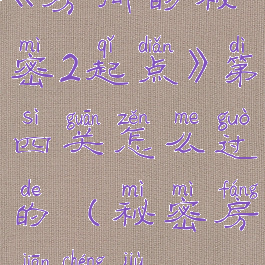 mì qǐ diǎn dì
密2起点》第
sì guān zěn me guò
四关怎么过
de mì mì fáng
的(秘密房
jiān chéng jiù